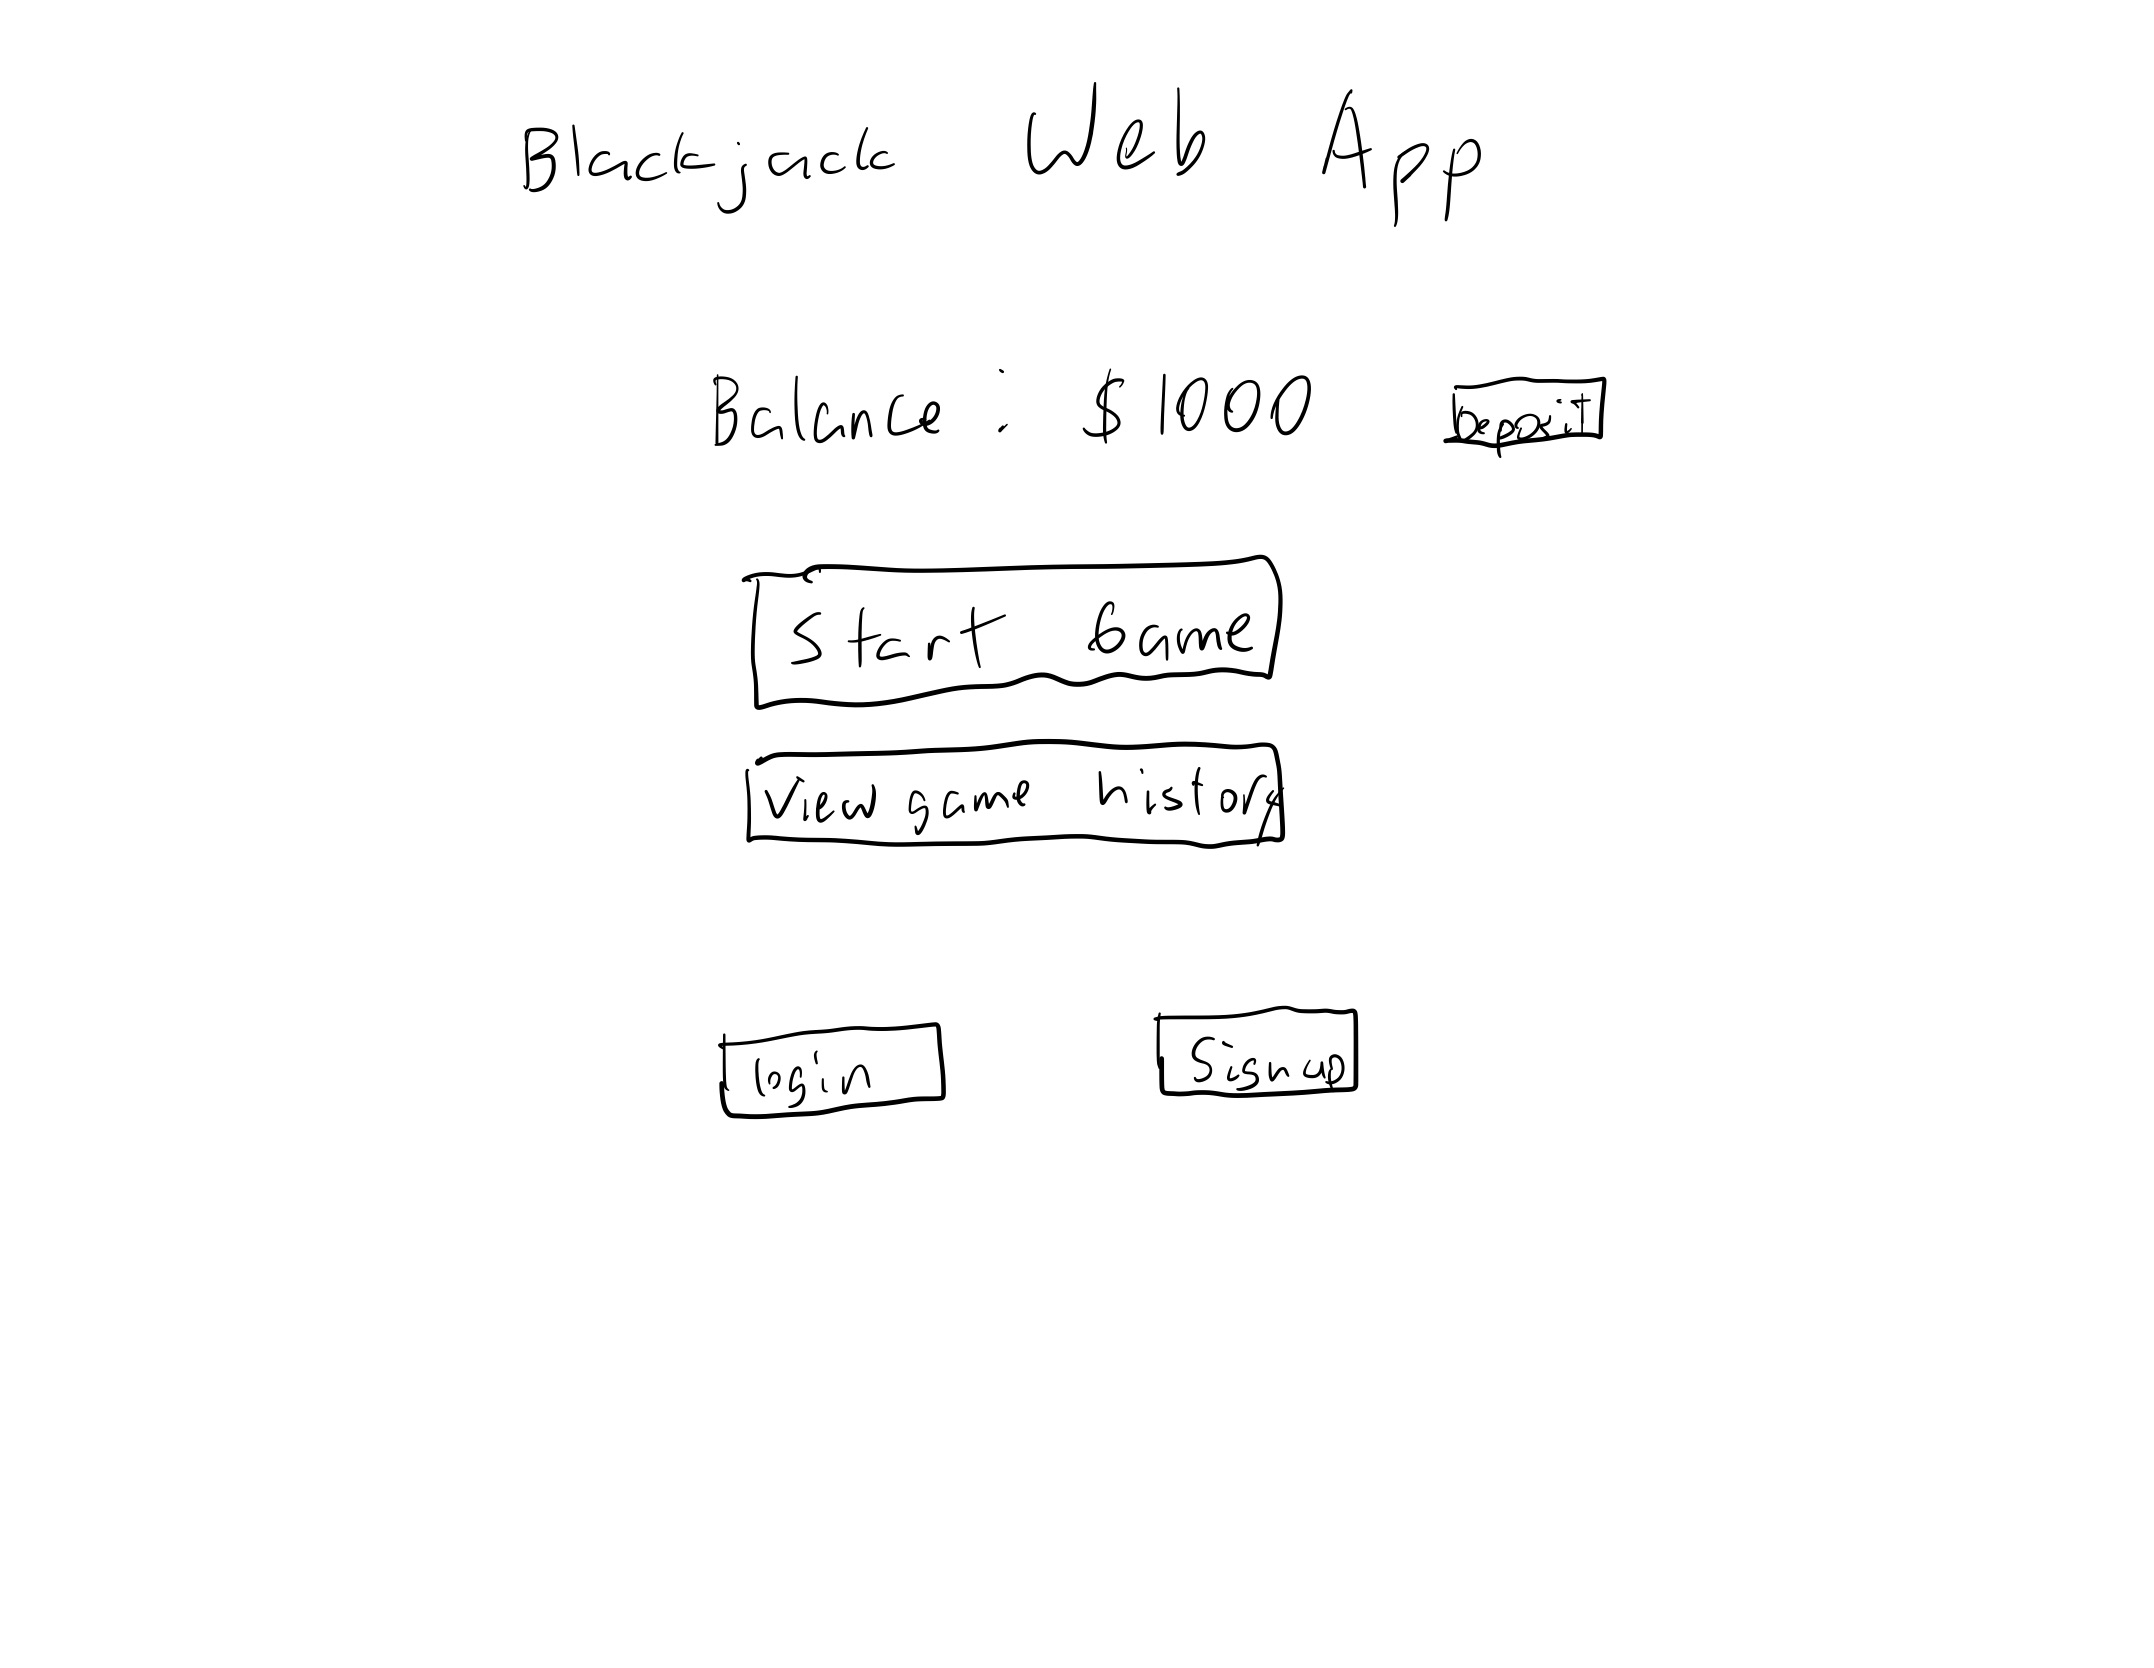 Blackjack Web App
Balance : $1000 Deposit
Start Game
View game history
login Signup